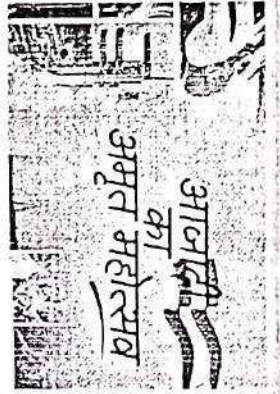 आज़ादी
का
अमृत महोत्सव